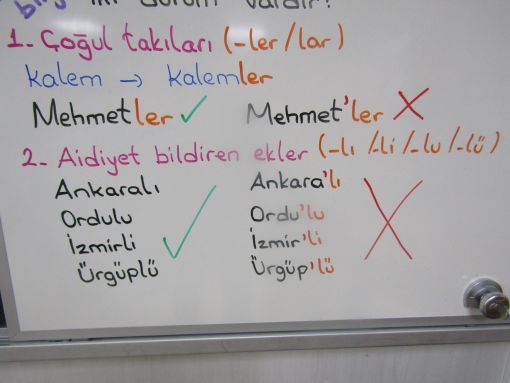 iki durum vardır:
1- Çoğul takıları (-ler/lar)
kalem → kalemler
Mehmetler ✓ Mehmet'ler X
2- Aidiyet bildiren ekler (-lı/-li/-lu/-lü)
Ankaralı Ankara'lı
Ordulu Ordu'lu
İzmirli ✓ İzmir'li X
Ürgüplü Ürgüp'lü